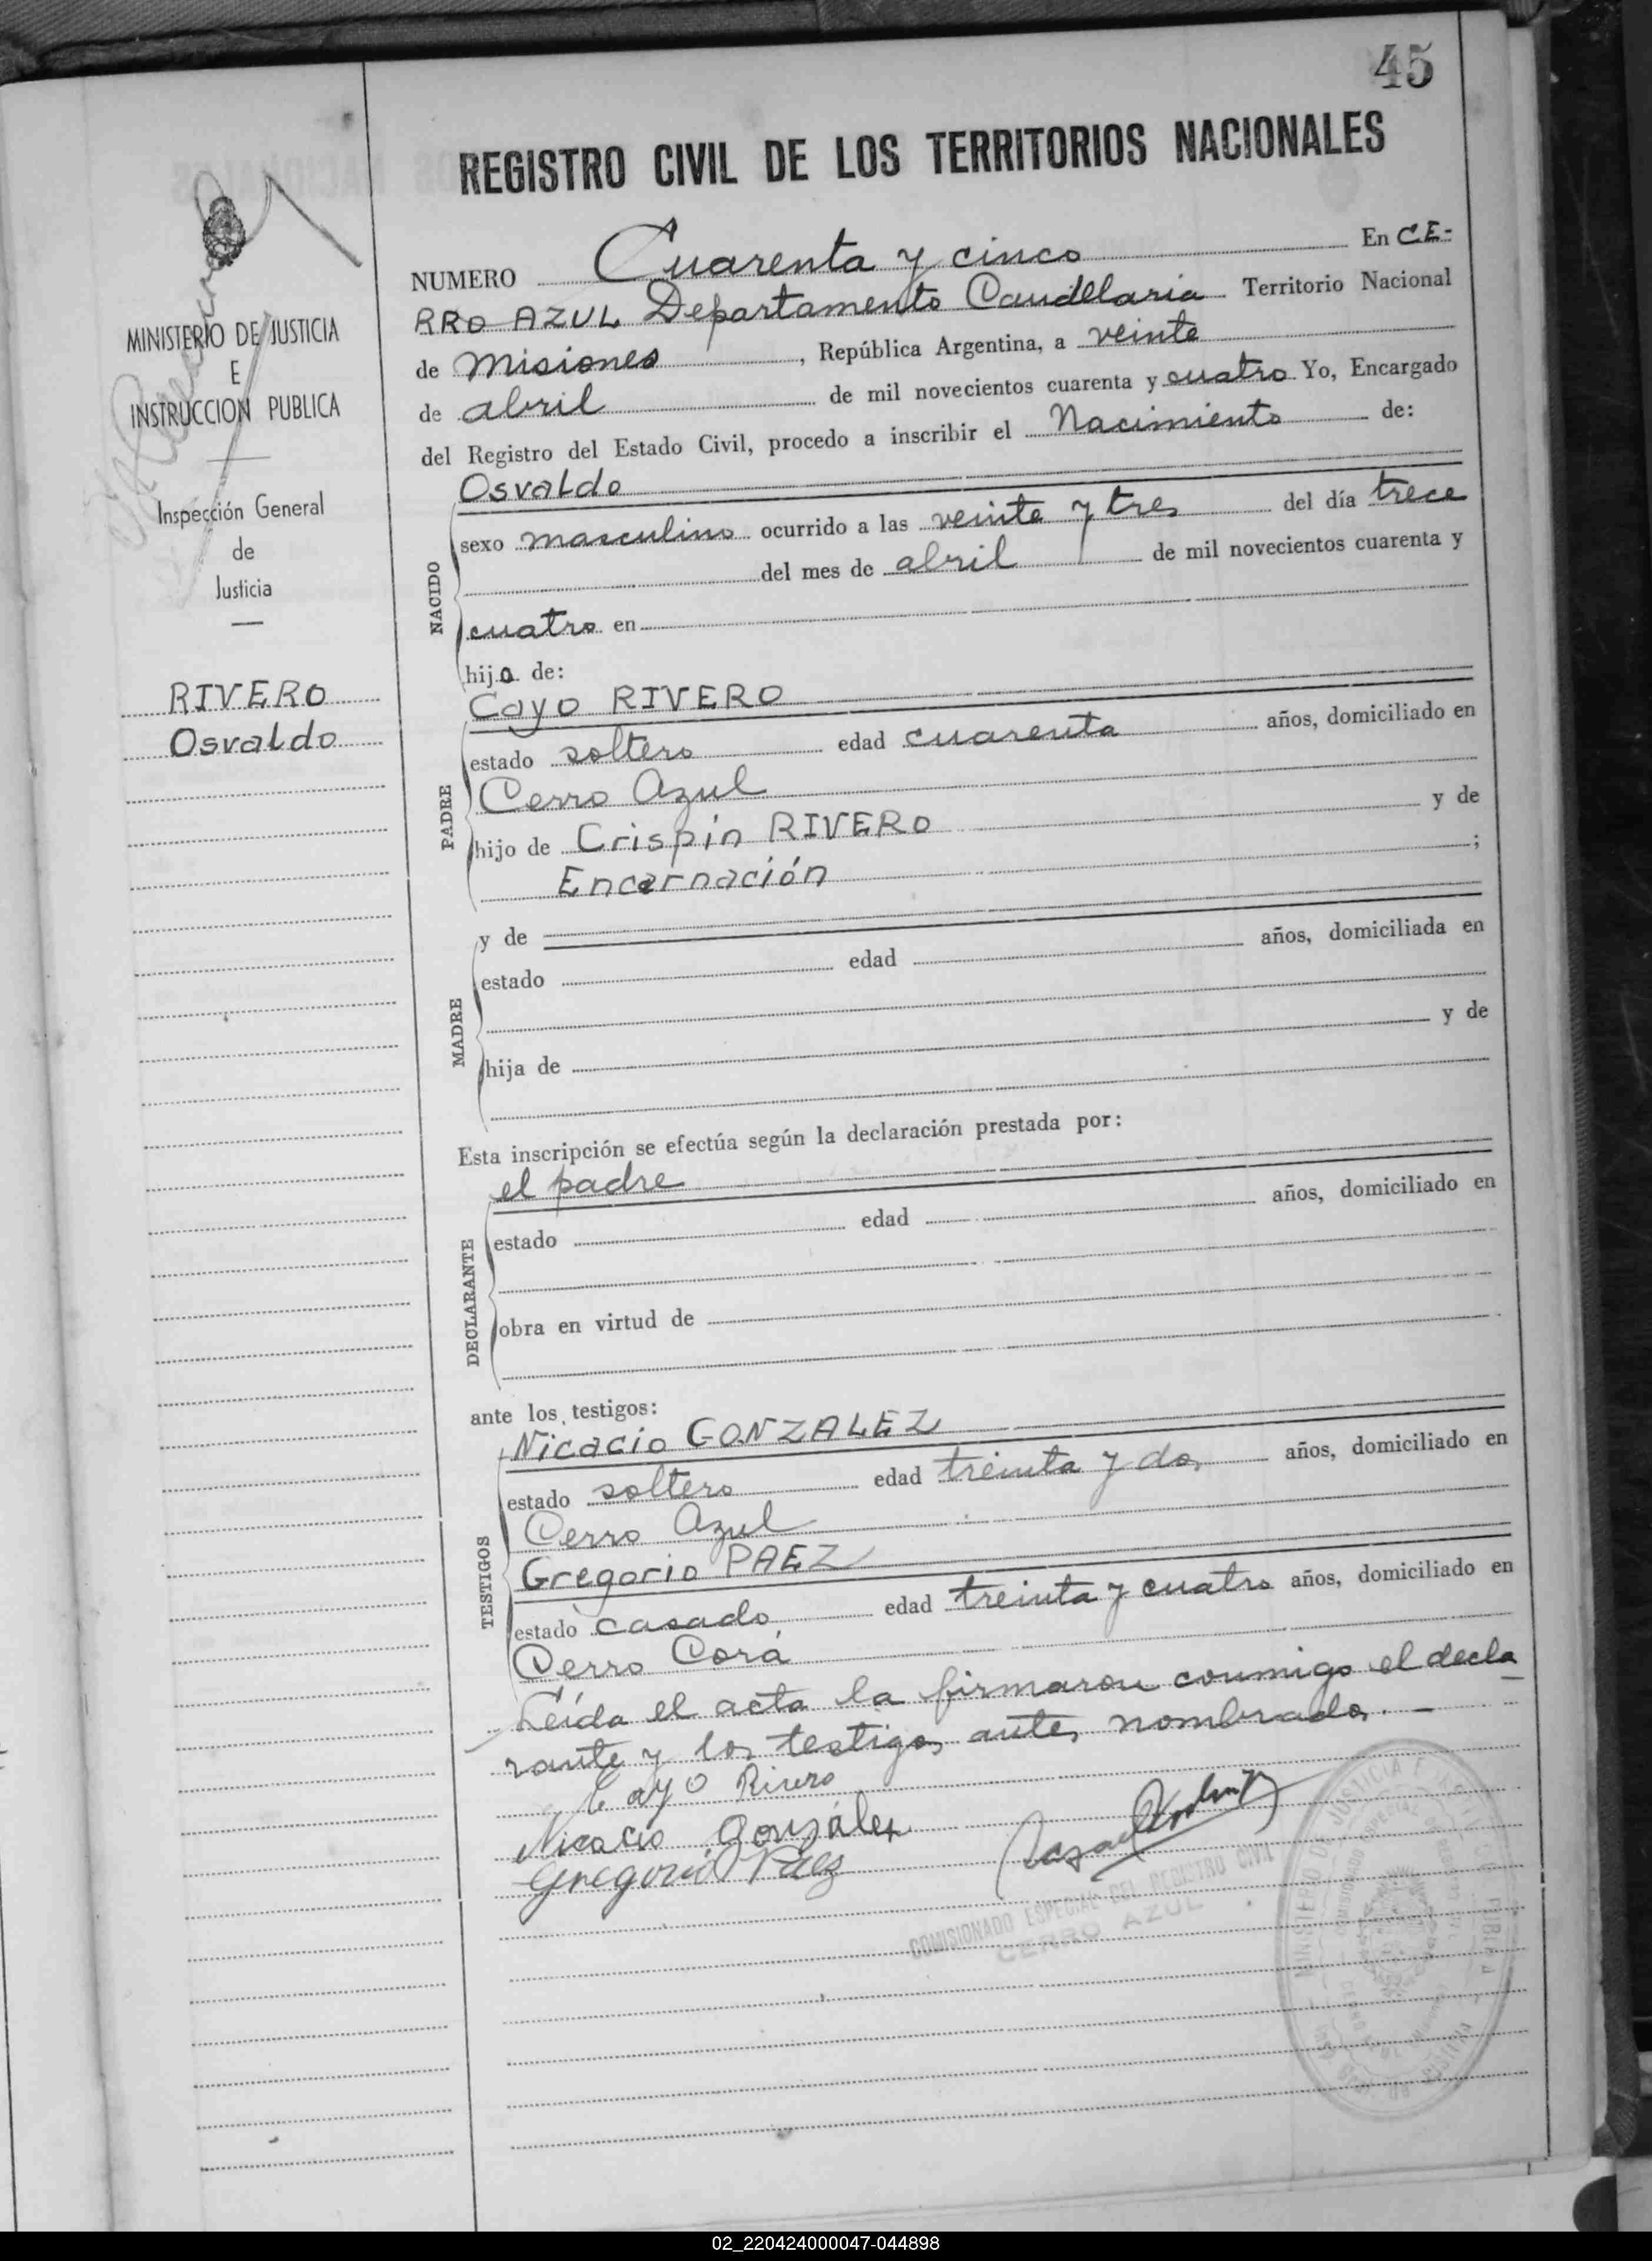 45
REGISTRO CIVIL DE LOS TERRITORIOS NACIONALES
NUMERO Cuarenta y cinco En CE-
RRO AZUL Departamento Candelaria Territorio Nacional
de Misiones, República Argentina, a veinte
de abril de mil novecientos cuarenta y cuatro Yo, Encargado
del Registro del Estado Civil, procedo a inscribir el Nacimiento de:
MINISTERIO DE JUSTICIA
E
INSTRUCCION PUBLICA
Inspección General
de
Justicia
RIVERO
Osvaldo
NACIDO
Osvaldo
sexo masculino ocurrido a las veinte y tres del día trece
del mes de abril de mil novecientos cuarenta y
cuatro en
hijo de:
PADRE
Cayo RIVERO
estado soltero edad cuarenta años, domiciliado en
Cerro Azul
hijo de Crispin RIVERO y de
Encarnación ;
MADRE
y de
estado edad años, domiciliada en
hija de y de
Esta inscripción se efectúa según la declaración prestada por:
DECLARANTE
el padre
estado edad años, domiciliado en
obra en virtud de
ante los testigos:
TESTIGOS
Nicacio GONZALEZ
estado soltero edad treinta y dos años, domiciliado en
Cerro Azul
Gregorio PAEZ
estado casado edad treinta y cuatro años, domiciliado en
Cerro Corá
Leída el acta la firmaron conmigo el decla
rante y los testigos antes nombrados. —
Cayo Rivero
Nicacio González
Gregorio Páez
COMISIONADO ESPECIAL DEL REGISTRO CIVIL
CERRO AZUL
02_220424000047-044898